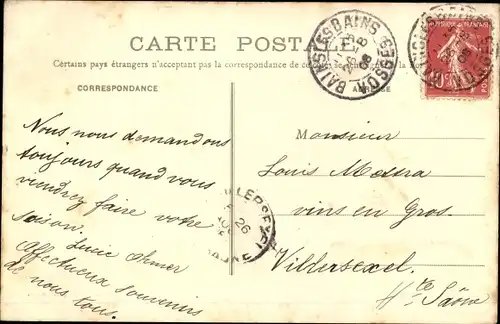 CARTE POSTALE
Certains pays étrangers n'acceptent pas la correspondance de
CORRESPONDANCE
BAINS LES BAINS
VOSGES
08
Nous nous demandons
toujours quand vous
viendrez faire votre
saison.
Lucie
Affectueux souvenirs
de nous tous.
Monsieur
Louis
vins en Gros.
Vildersexel.
Hte Saône
VILLERSEXEL
26